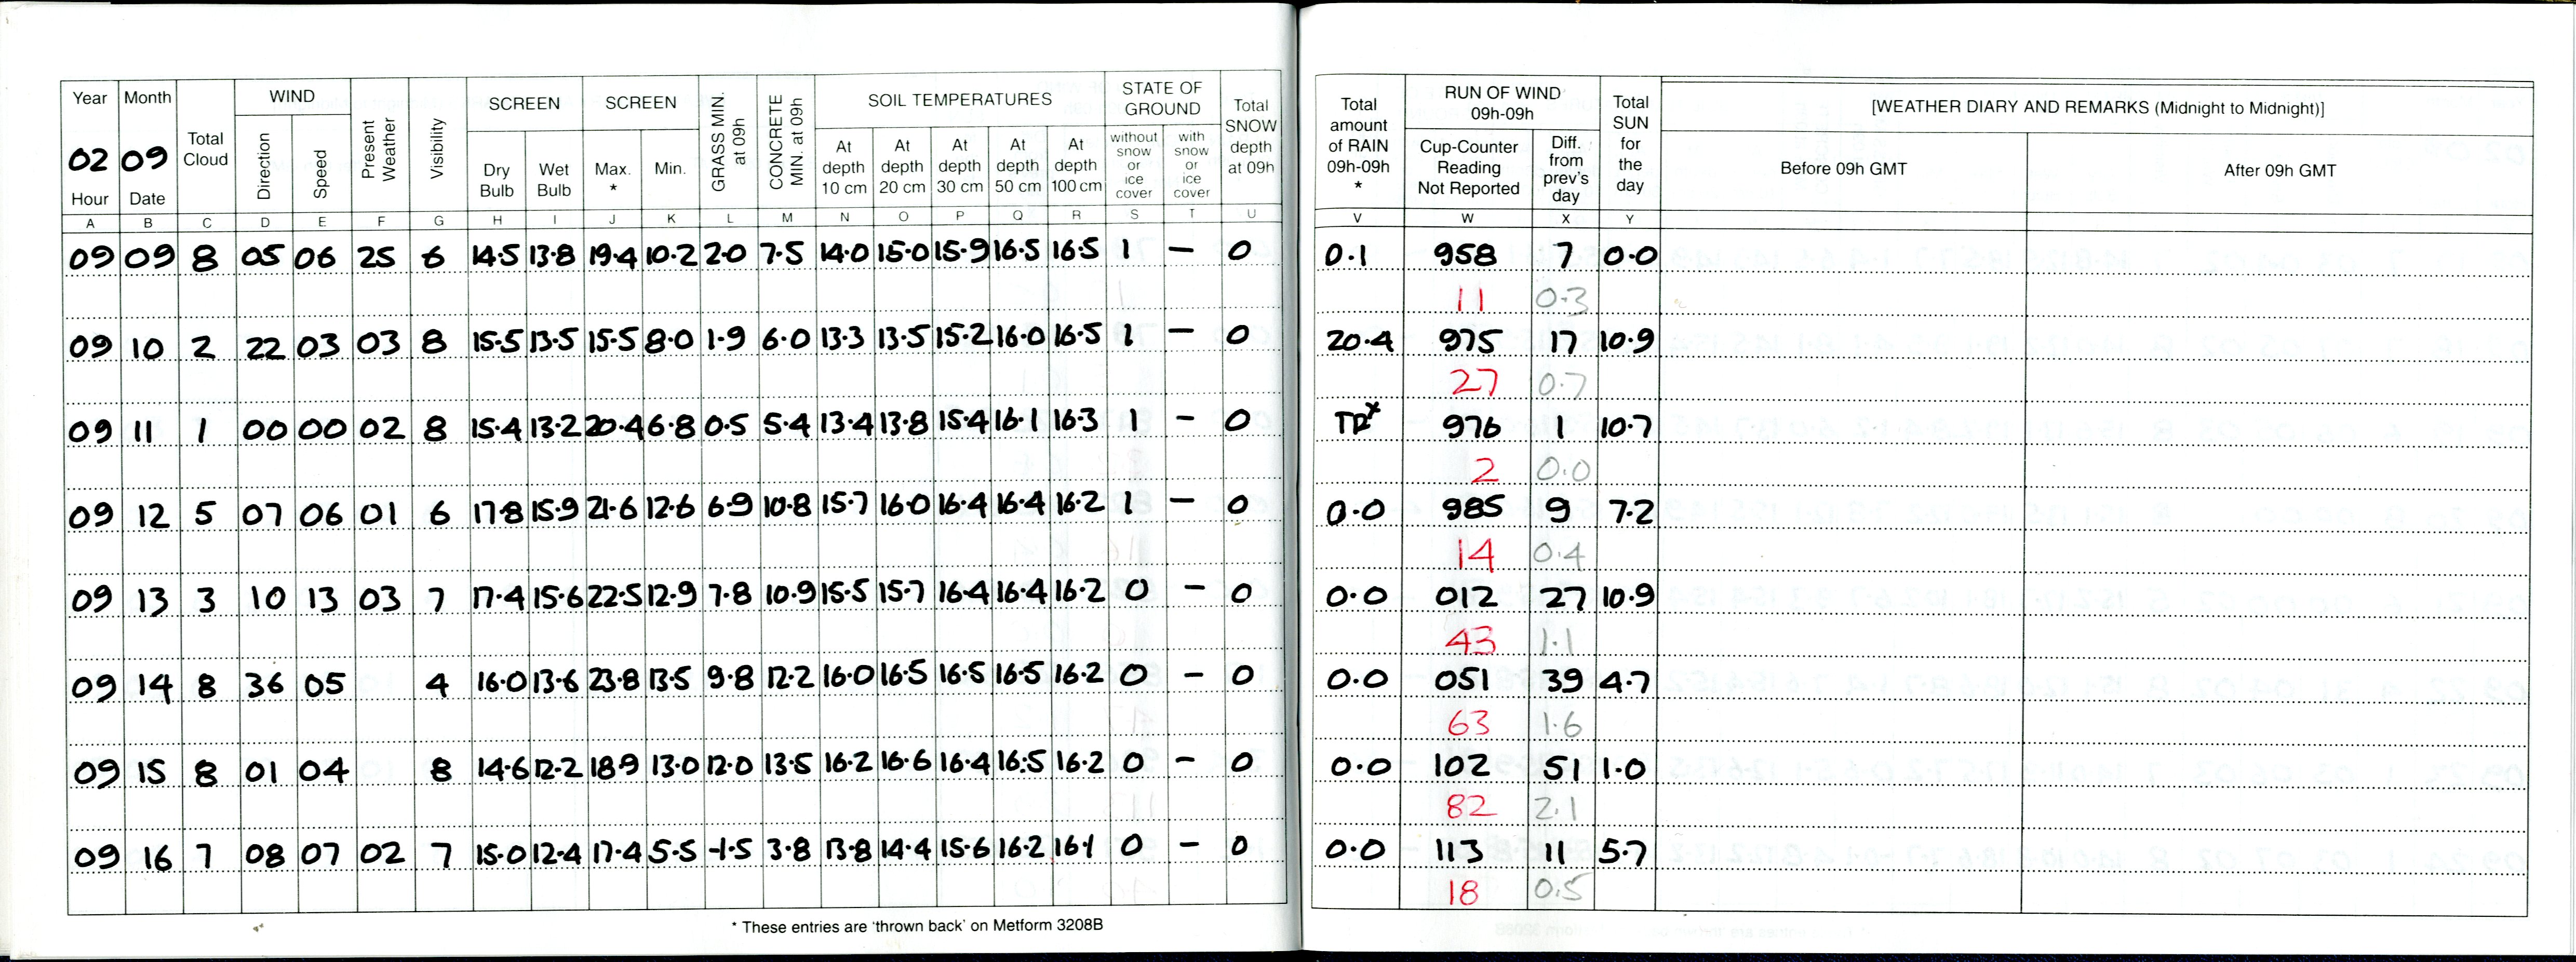 Year Month Total Cloud WIND Present Weather Visibility SCREEN SCREEN GRASS MIN. at 09h CONCRETE MIN. at 09h SOIL TEMPERATURES STATE OF GROUND Total SNOW depth at 09h
02 09 Direction Speed Dry Bulb Wet Bulb Max. * Min. At depth 10 cm At depth 20 cm At depth 30 cm At depth 50 cm At depth 100 cm without snow or ice cover with snow or ice cover
Hour Date
A B C D E F G H I J K L M N O P Q R S T U
09 09 8 05 06 25 6 14.5 13.8 19.4 10.2 2.0 7.5 14.0 15.0 15.9 16.5 16.5 1 – 0
09 10 2 22 03 03 8 15.5 13.5 15.5 8.0 1.9 6.0 13.3 13.5 15.2 16.0 16.5 1 – 0
09 11 1 00 00 02 8 15.4 13.2 20.4 6.8 0.5 5.4 13.4 13.8 15.4 16.1 16.3 1 – 0
09 12 5 07 06 01 6 17.8 15.9 21.6 12.6 6.9 10.8 15.7 16.0 16.4 16.4 16.2 1 – 0
09 13 3 10 13 03 7 17.4 15.6 22.5 12.9 7.8 10.9 15.5 15.7 16.4 16.4 16.2 0 – 0
09 14 8 36 05 4 16.0 13.6 23.8 13.5 9.8 12.2 16.0 16.5 16.5 16.5 16.2 0 – 0
09 15 8 01 04 8 14.6 12.2 18.9 13.0 12.0 13.5 16.2 16.6 16.4 16.5 16.2 0 – 0
09 16 7 08 07 02 7 15.0 12.4 17.4 5.5 -1.5 3.8 13.8 14.4 15.6 16.2 16.1 0 – 0
* These entries are 'thrown back' on Metform 3208B
Total amount of RAIN 09h-09h * RUN OF WIND 09h-09h Total SUN for the day [WEATHER DIARY AND REMARKS (Midnight to Midnight)]
Cup-Counter Reading Not Reported Diff. from prev's day Before 09h GMT After 09h GMT
V W X Y
0.1 958 7 0.0
11 0.3
20.4 975 17 10.9
27 0.7
976 1 10.7
2 0.0
0.0 985 9 7.2
14 0.4
0.0 012 27 10.9
43 1.1
0.0 051 39 4.7
63 1.6
0.0 102 51 1.0
82 2.1
0.0 113 11 5.7
18 0.5